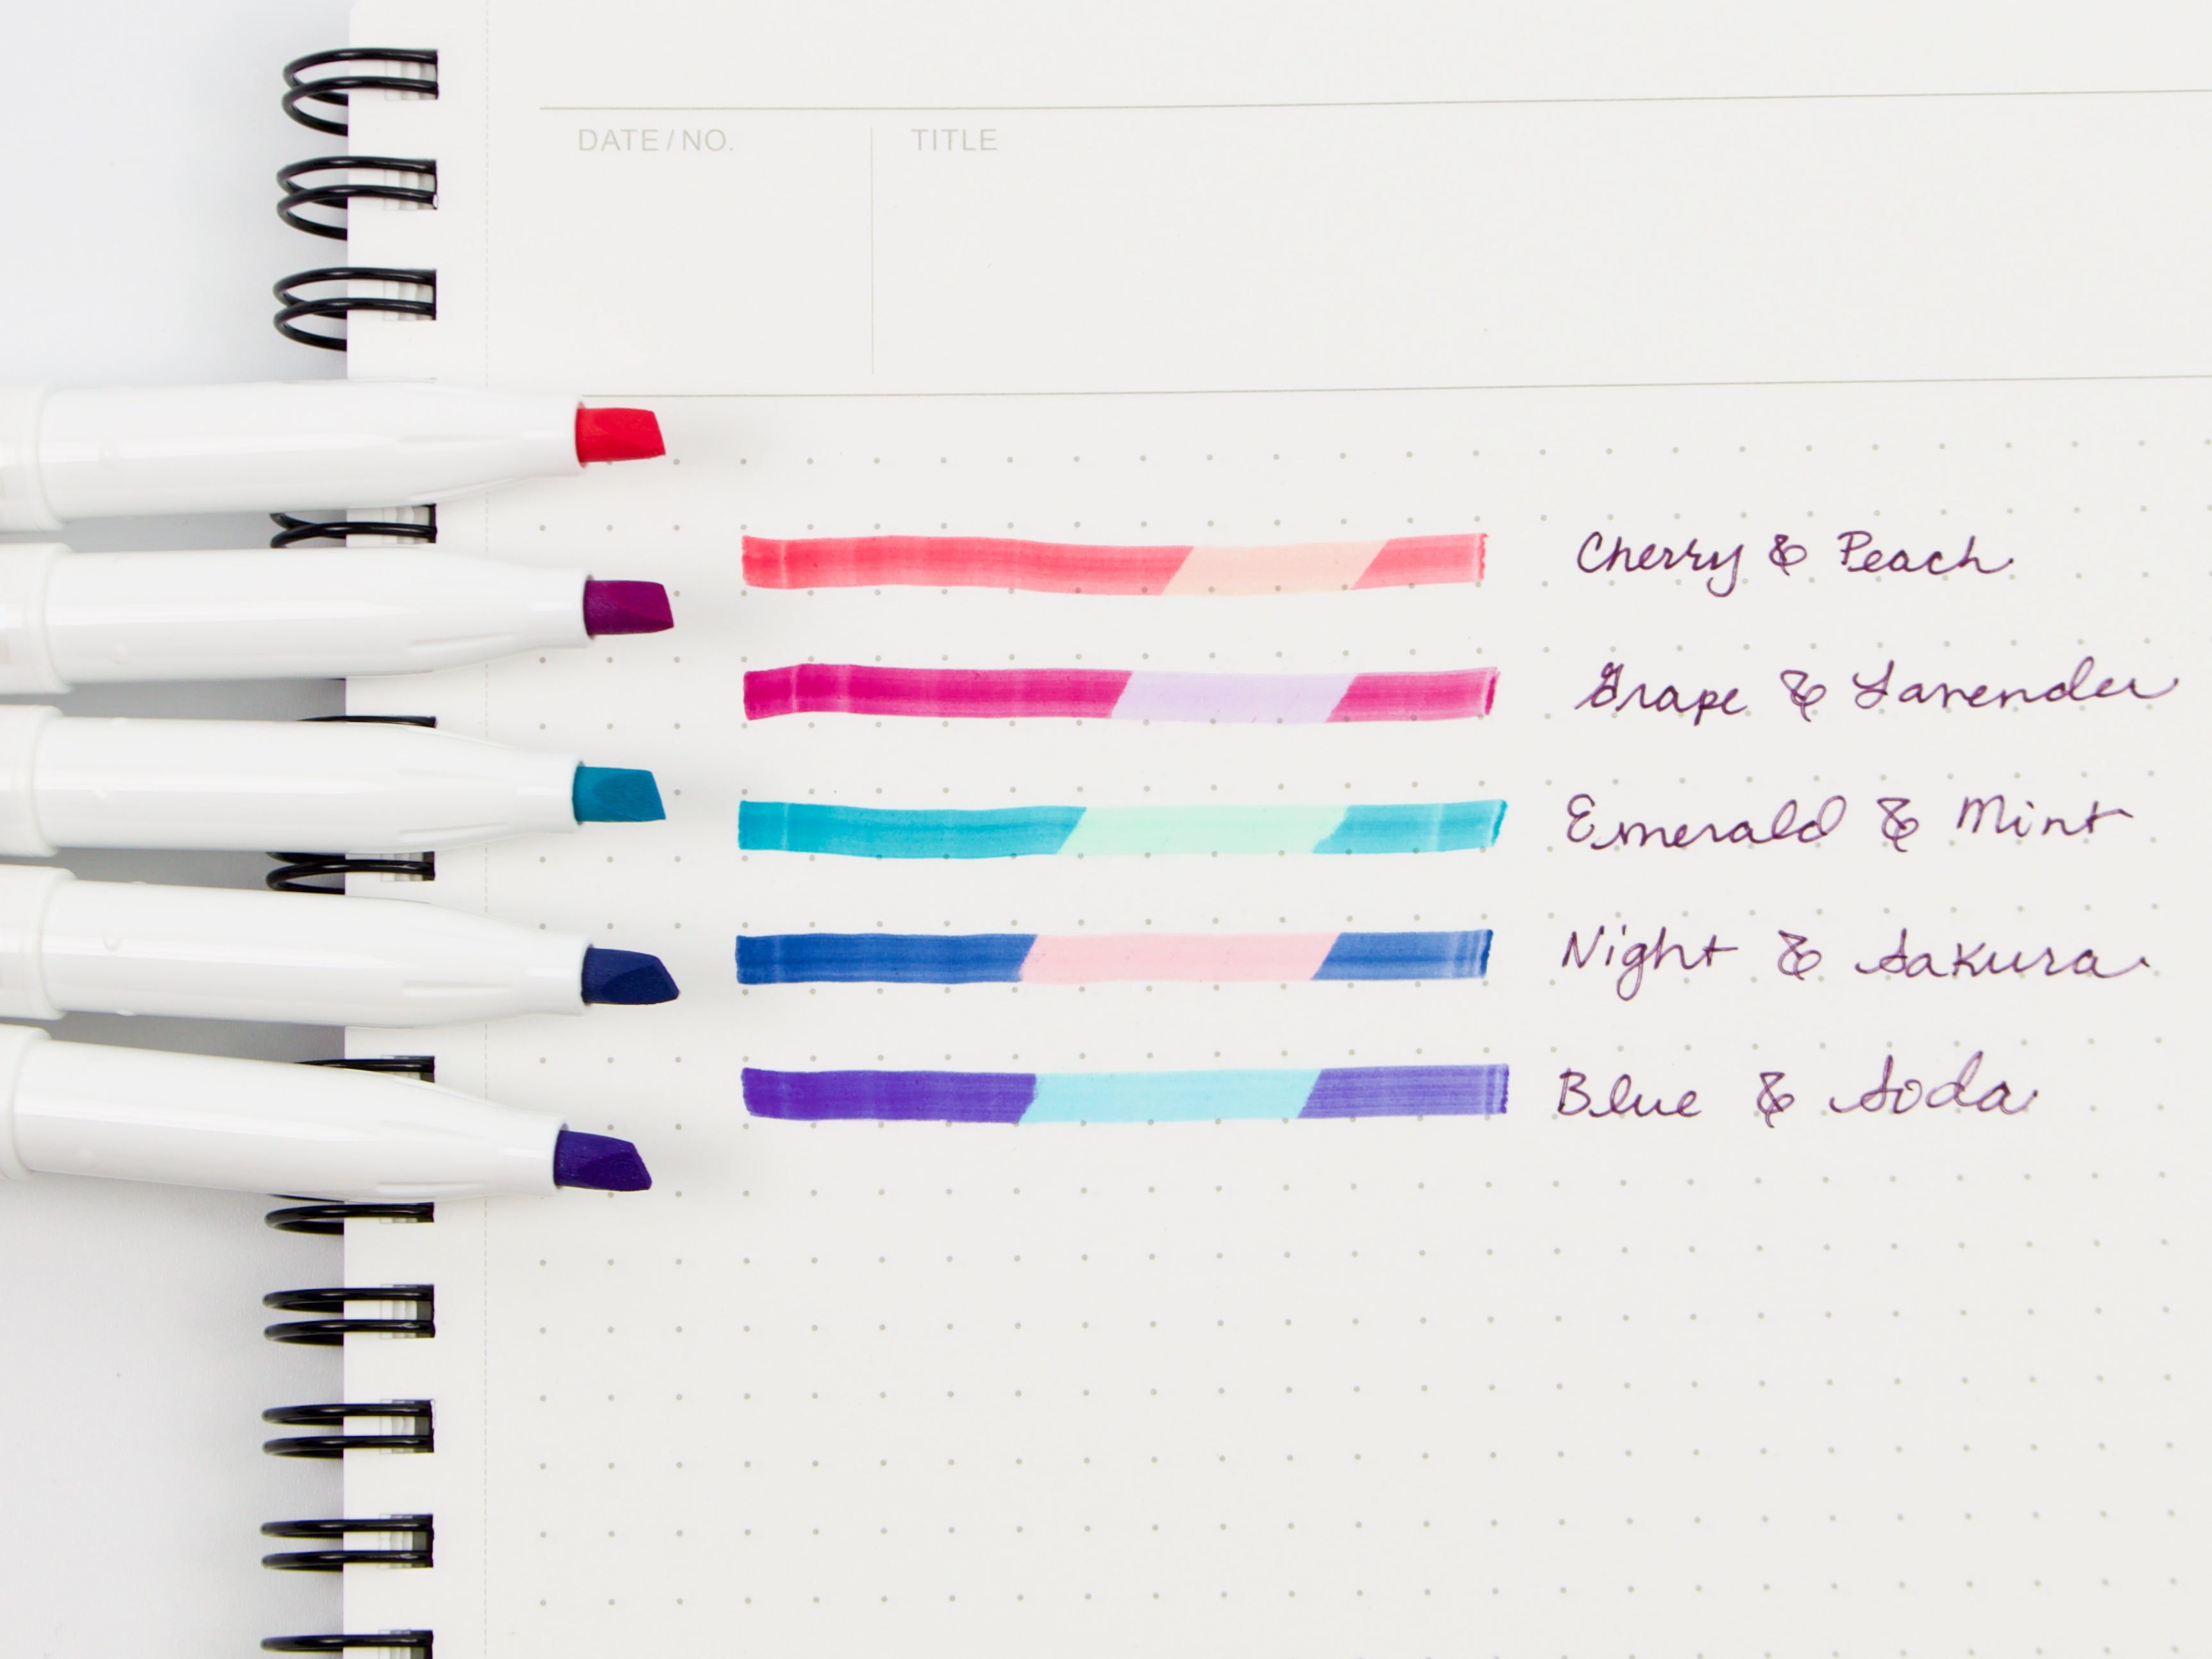 DATE/NO. TITLE
Cherry & Peach
Grape & Lavender
Emerald & Mint
Night & Sakura
Blue & Soda